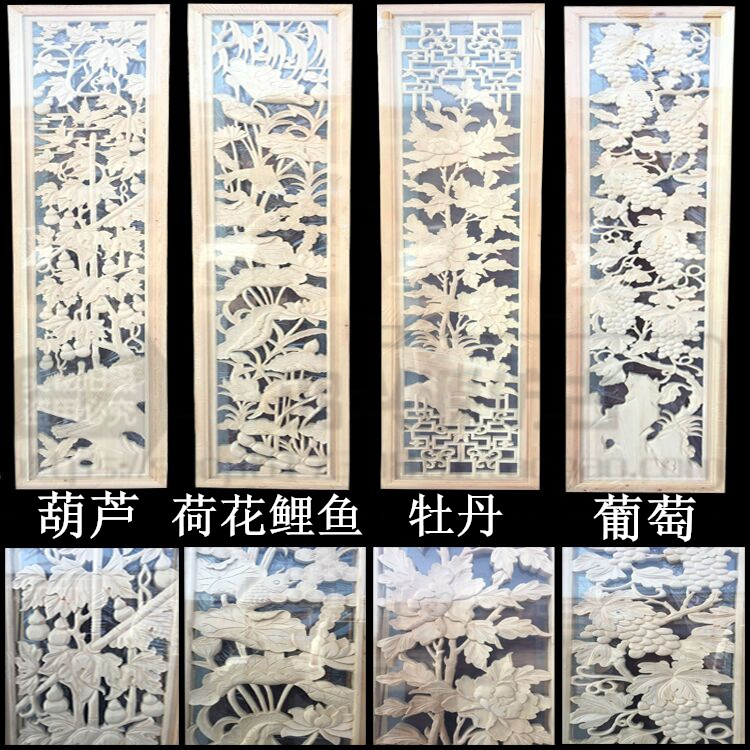 葫芦
荷花鲤鱼
牡丹
葡萄